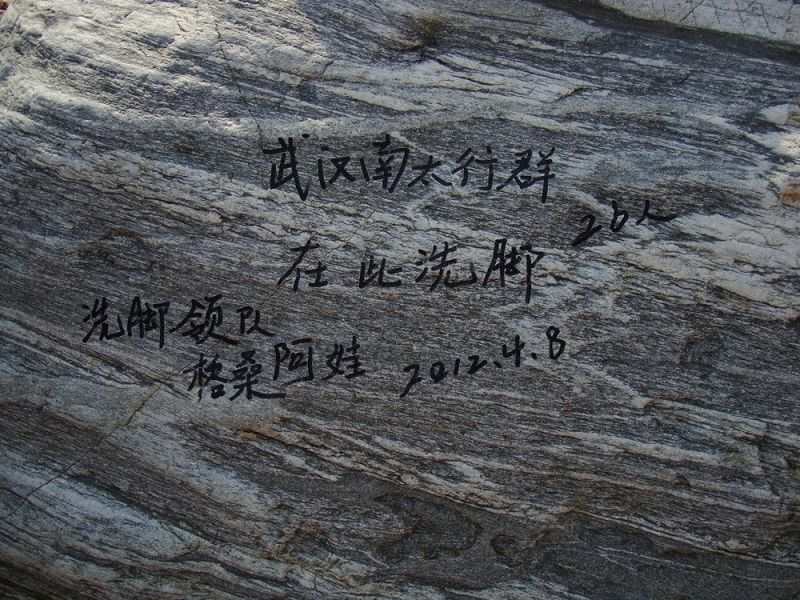 武汉南太行群
26人
在此洗脚
洗脚领队
格桑阿娃 2012.4.8